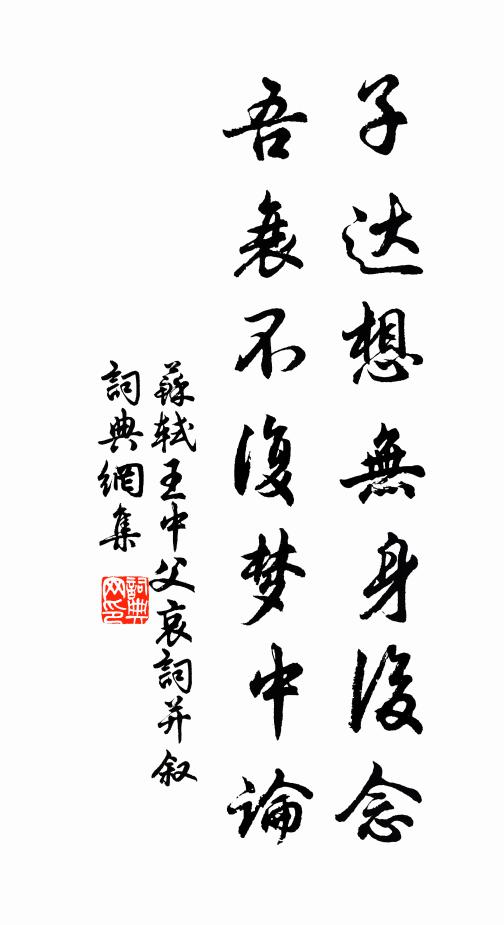 子达想無身後念
吾衰不復梦中論
蘇軾王中父哀詞并叙
詞典網集
詞典網印